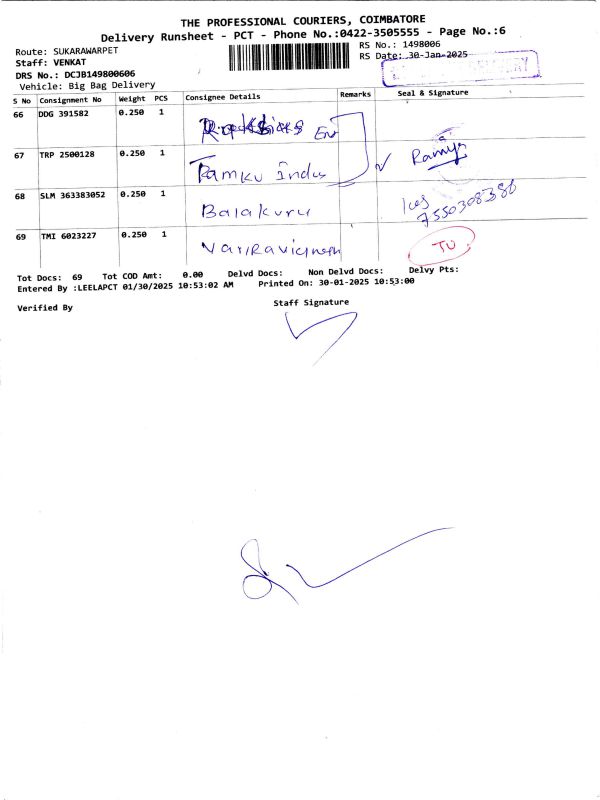 THE PROFESSIONAL COURIERS, COIMBATORE
Delivery Runsheet - PCT - Phone No.:0422-3505555 - Page No.:6
Route: SUKARAWARPET
RS No.: 1498006
Staff: VENKAT
RS Date: 30-Jan-2025
DRS No.: DCJB149800606
Vehicle: Big Bag Delivery
S No Consignment No Weight PCS Consignee Details Remarks Seal & Signature
66 DDG 391582 0.250 1
67 TRP 2500128 0.250 1 Ramku Indus Ramya
68 SLM 363383052 0.250 1 Balakuru 7550308380
69 TMI 6023227 0.250 1
Tot Docs: 69 Tot COD Amt: 0.00 Delvd Docs: Non Delvd Docs: Delvy Pts:
Entered By :LEELAPCT 01/30/2025 10:53:02 AM Printed On: 30-01-2025 10:53:00
Verified By
Staff Signature